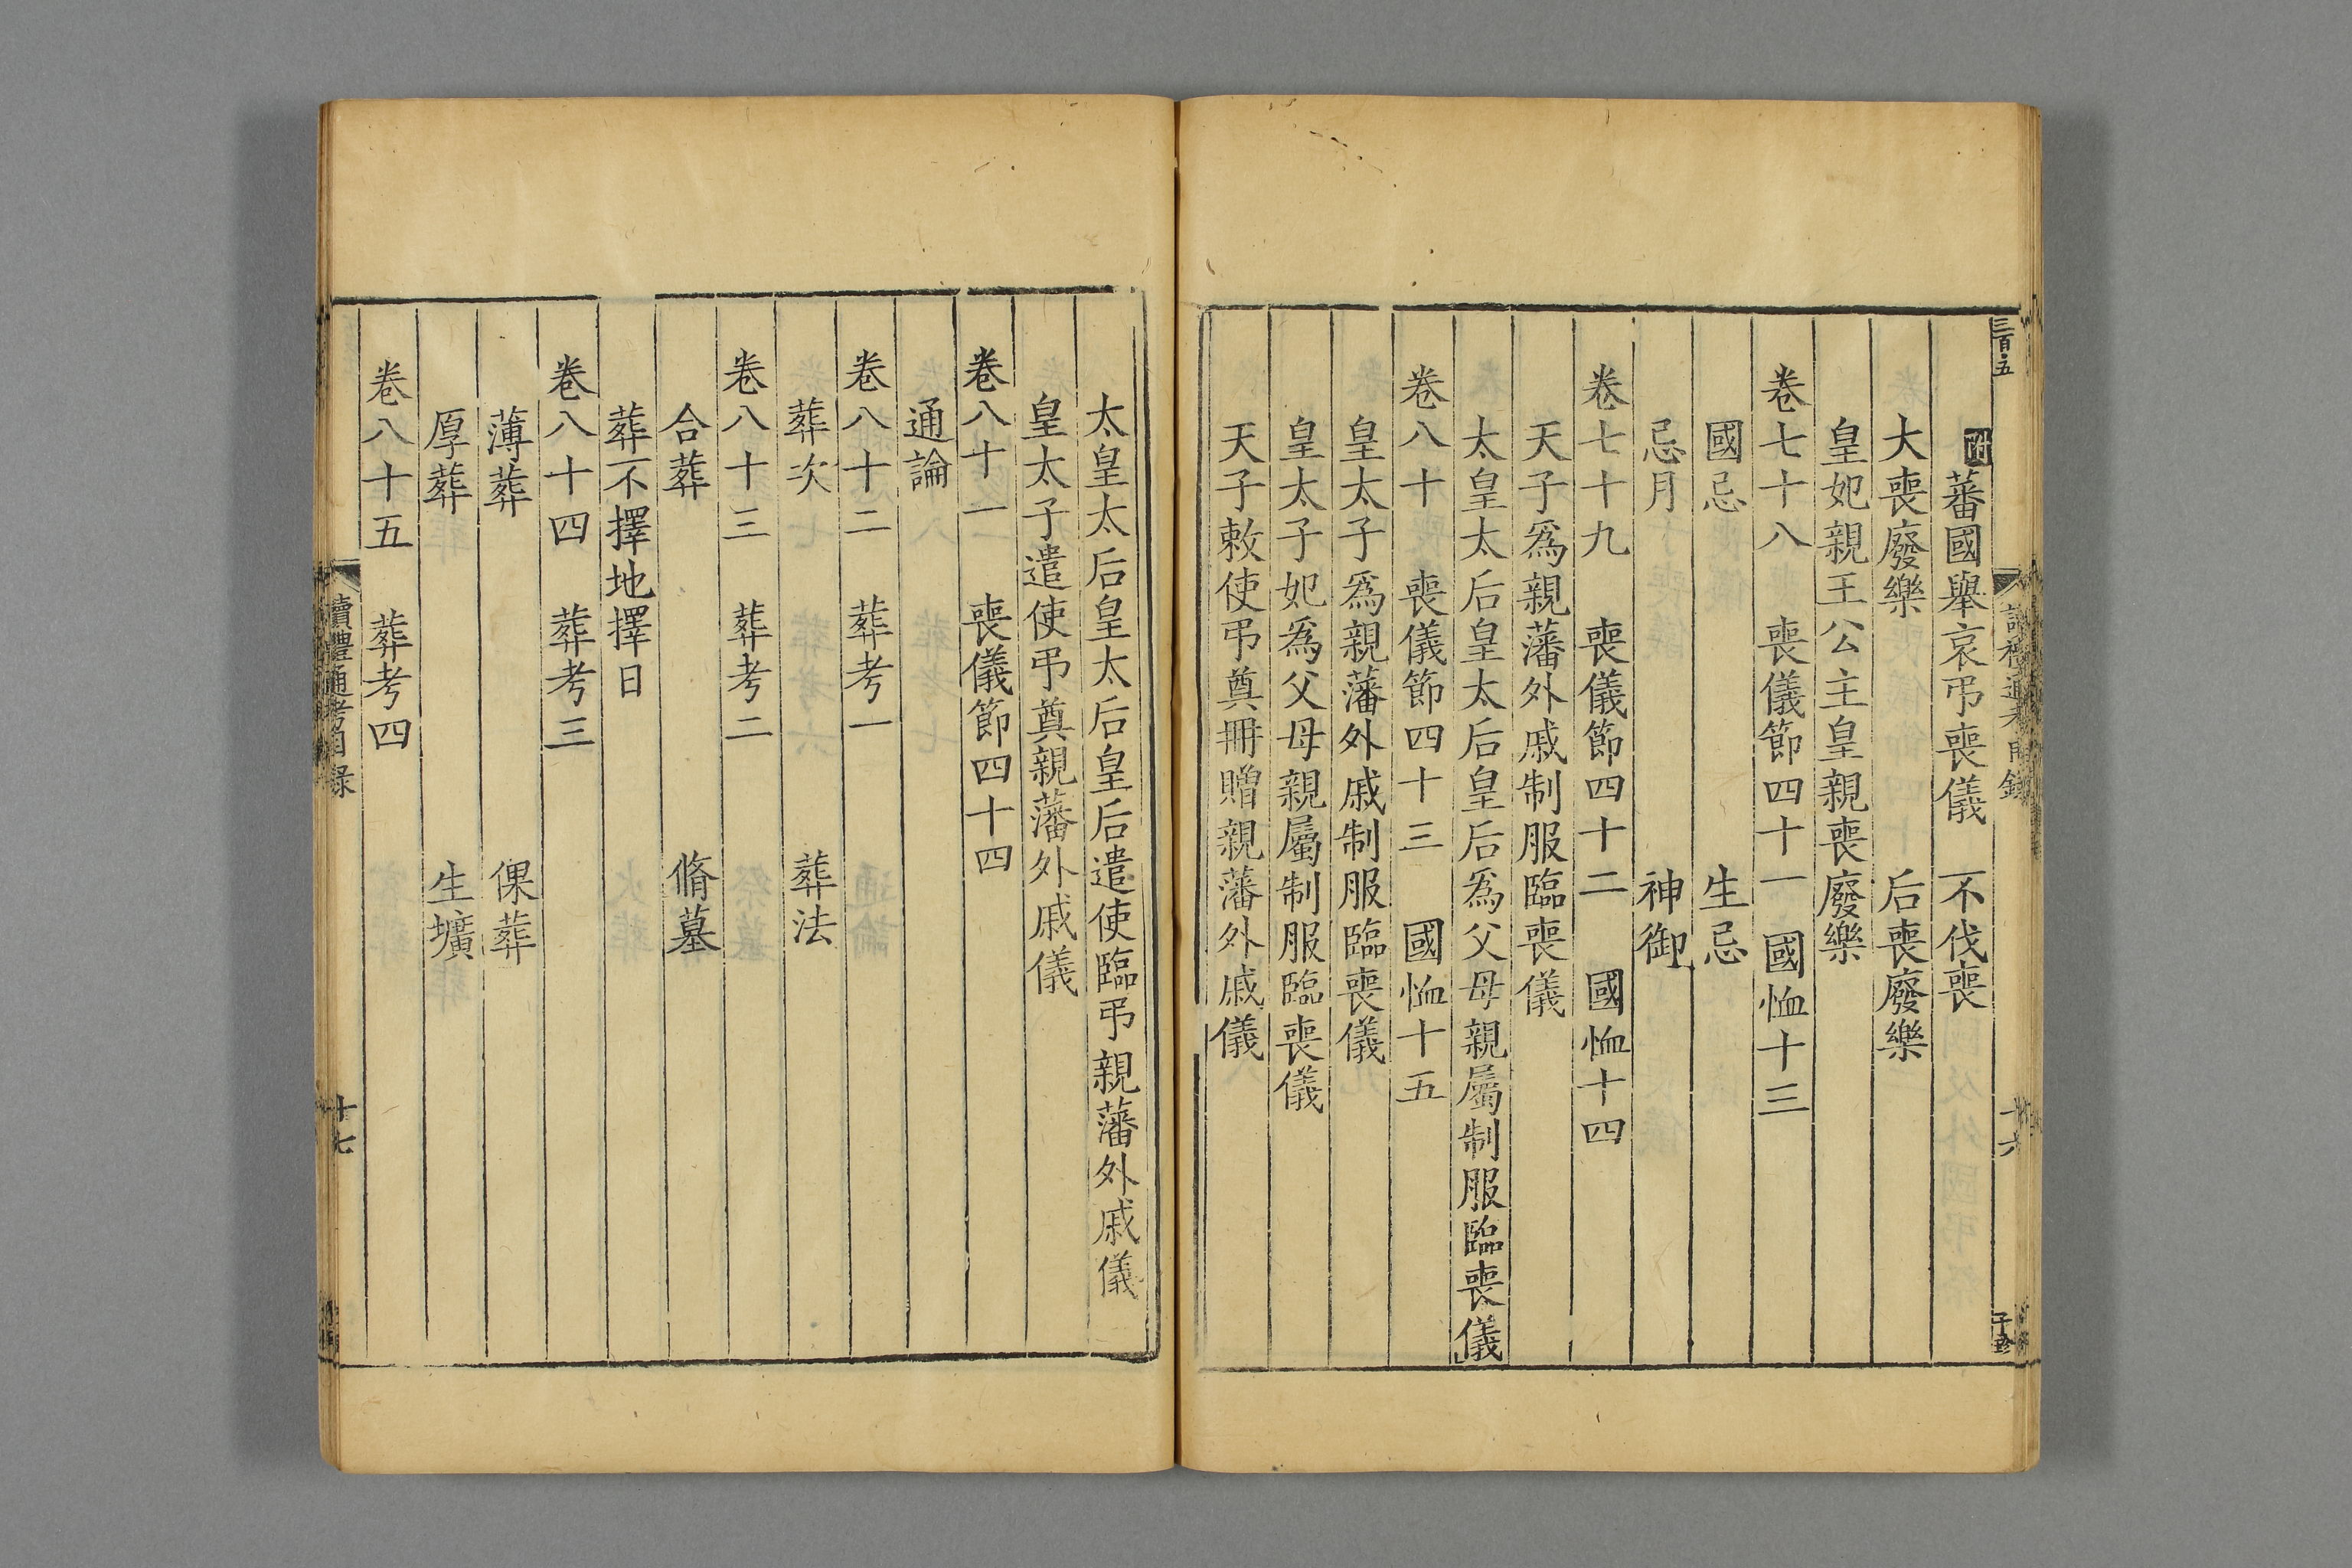 三百五
讀禮通考目錄
十六
附蕃國舉哀弔喪儀　不伐喪
大喪廢樂　后喪廢樂
皇妃親王公主皇親喪廢樂
卷七十八　喪儀節四十一　國恤十三
國忌　生忌
忌月　神御
卷七十九　喪儀節四十二　國恤十四
天子爲親藩外戚制服臨喪儀
太皇太后皇太后皇后爲父母親屬制服臨喪儀
卷八十　喪儀節四十三　國恤十五
皇太子爲親藩外戚制服臨喪儀
皇太子妃爲父母親屬制服臨喪儀
天子敕使弔奠冊贈親藩外戚儀
太皇太后皇太后皇后遣使臨弔親藩外戚儀
皇太子遣使弔奠親藩外戚儀
卷八十一　喪儀節四十四
通論
卷八十二　葬考一
葬次　葬法
卷八十三　葬考二
合葬　脩墓
葬不擇地擇日
卷八十四　葬考三
薄葬　倮葬
厚葬　生壙
卷八十五　葬考四
讀禮通考目錄
十七